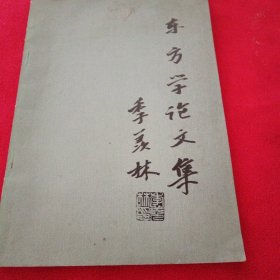 东方学论文集
季羡林